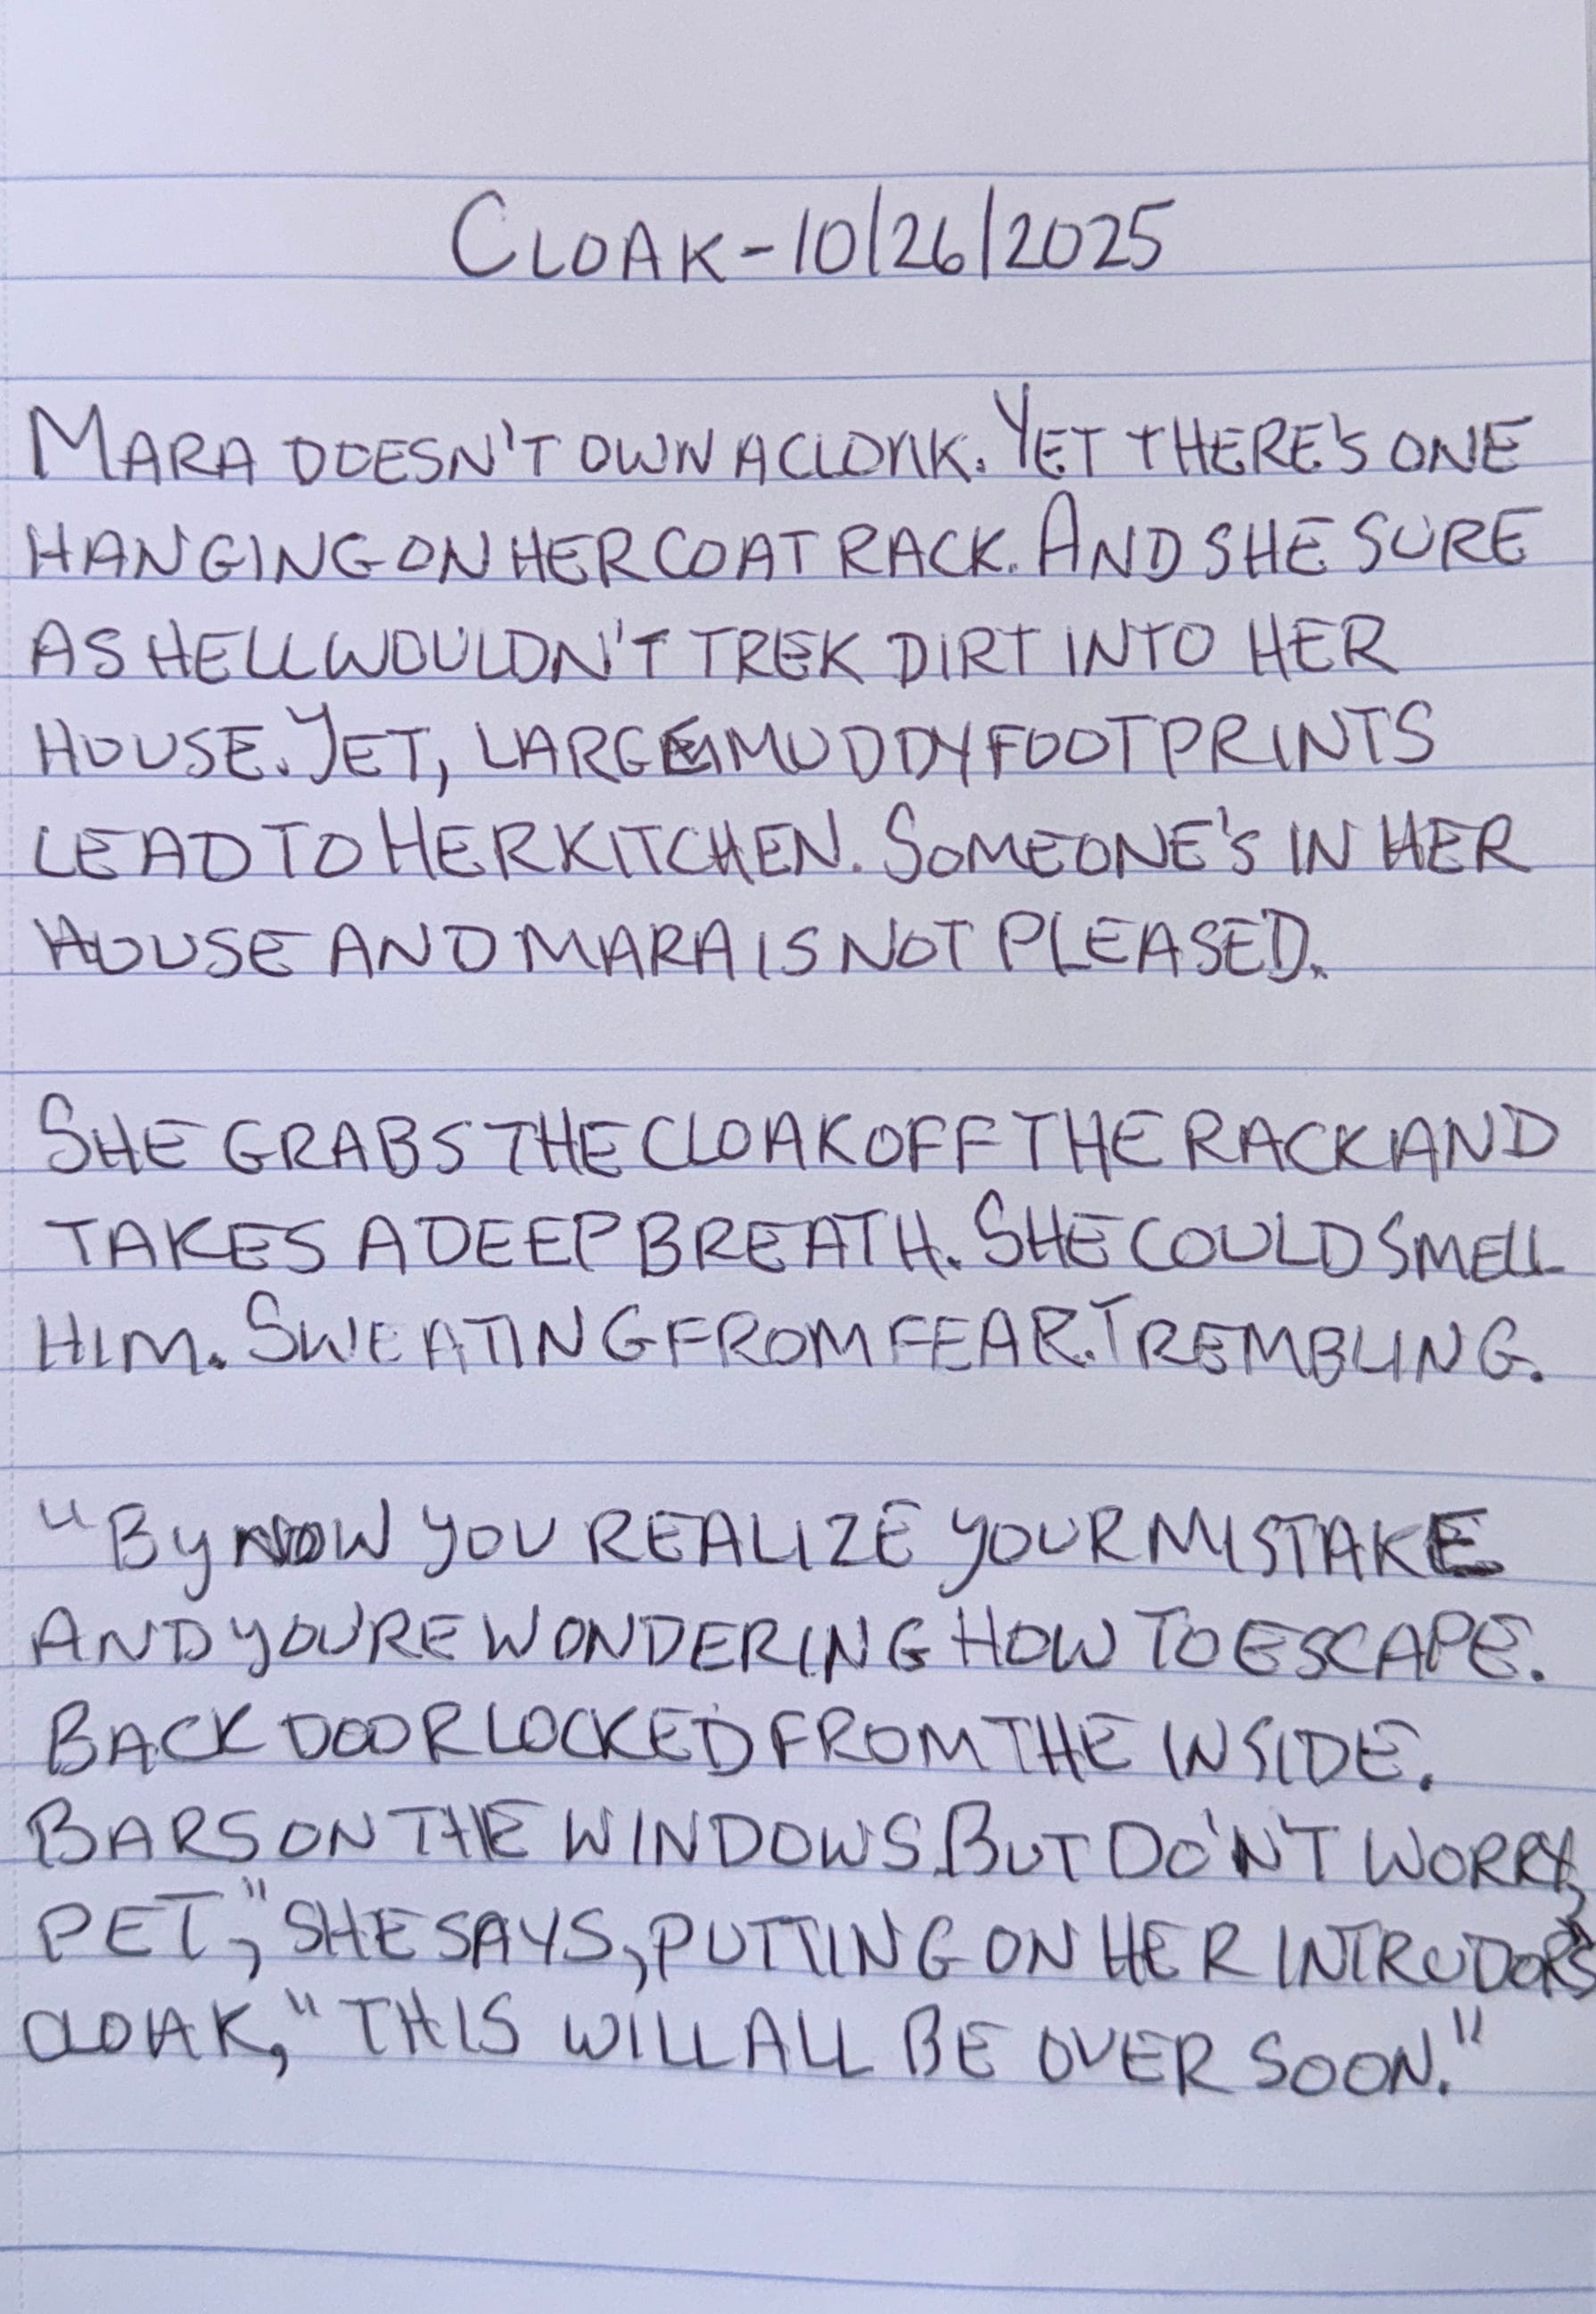 CLOAK - 10/26/2025
MARA DOESN'T OWN A CLOAK. YET THERE'S ONE
HANGING ON HER COAT RACK. AND SHE SURE
AS HELL WOULDN'T TREK DIRT INTO HER
HOUSE. YET, LARGE MUDDY FOOTPRINTS
LEAD TO HER KITCHEN. SOMEONE'S IN HER
HOUSE AND MARA IS NOT PLEASED.
SHE GRABS THE CLOAK OFF THE RACK AND
TAKES A DEEP BREATH. SHE COULD SMELL
HIM. SWEATING FROM FEAR. TREMBLING.
"BY NOW YOU REALIZE YOUR MISTAKE
AND YOU'RE WONDERING HOW TO ESCAPE.
BACK DOOR LOCKED FROM THE INSIDE.
BARS ON THE WINDOWS. BUT DO'N'T WORRY,
PET," SHE SAYS, PUTTING ON HER INTRUDOR'S
CLOAK, "THIS WILL ALL BE OVER SOON."